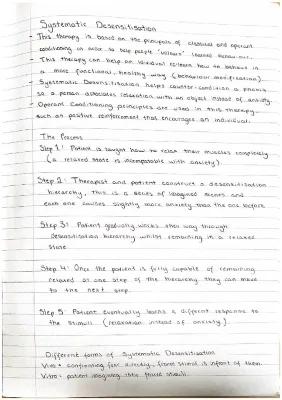 Systematic Desensitisation
- This therapy is based on the principals of classical and operant
conditioning in order to help people 'unlearn' learned behaviour.
- This therapy can help an individual relearn how to behave in
a more functional, healthy way (behaviour modification).
- Systematic Desensitisation helps counter-condition a phobia
so a person associates relaxation with an object instead of anxiety.
- Operant Conditioning principles are used in this therapy
such as positive reinforcement that encourages an individual.
The Process
Step 1: Patient is taught how to relax their muscles completely
(a relaxed state is incompatible with anxiety).
Step 2: Therapist and patient construct a desensitisation
hierarchy. This is a series of imagined scenes and
each one causes slightly more anxiety than the one before.
Step 3: Patient gradually works their way through
desensitisation hierarchy whilst remaining in a relaxed
state
Step 4: Once the patient is fully capable of remaining
relaxed at one step of the hierarchy they can move
to the next step.
Step 5: Patient eventually learns a different response to
the stimuli (relaxation instead of anxiety).
Different forms of Systematic Desensitisation
Vivo = confronting fear directly, stimuli is infront of them.
Vitro = patient imagines the feared stimuli.